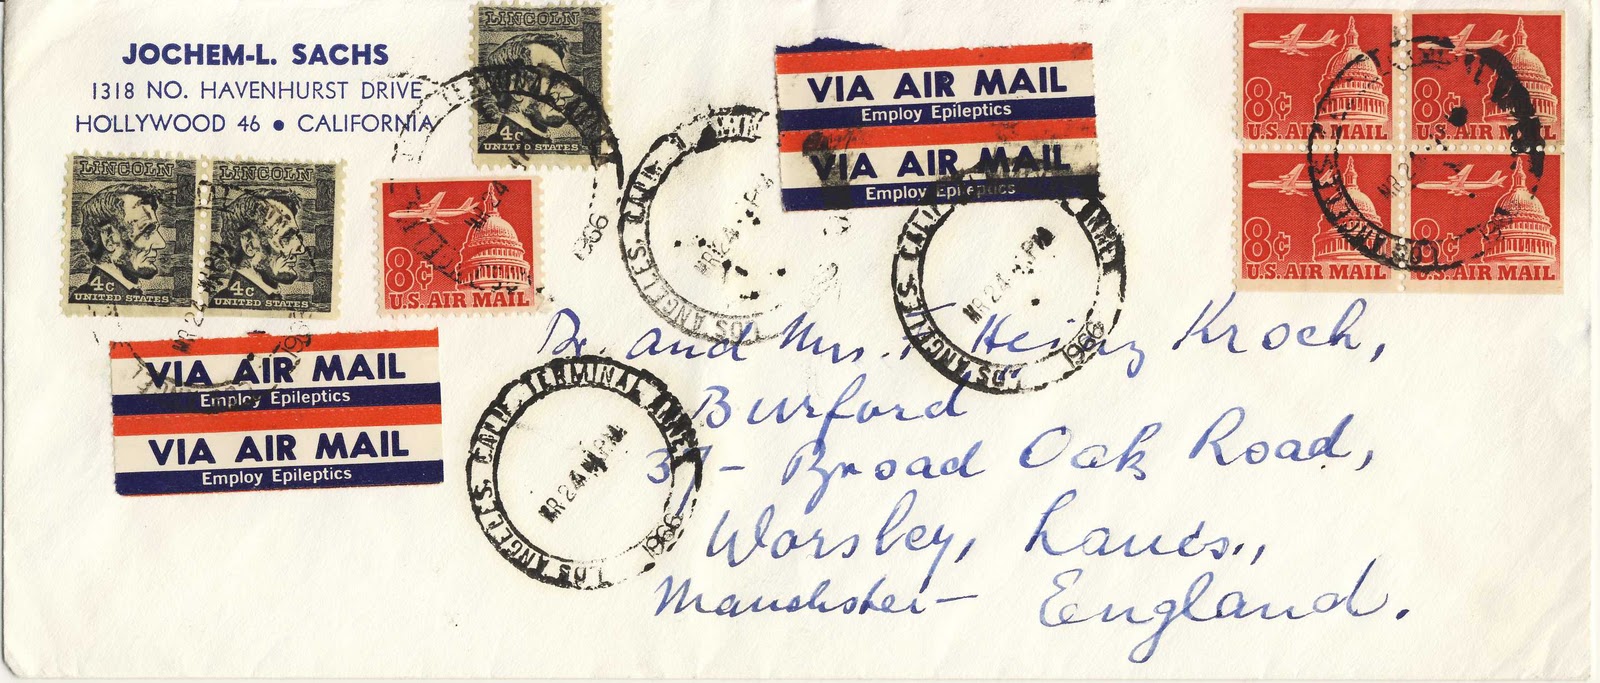 JOCHEM-L. SACHS
1318 NO. HAVENHURST DRIVE
HOLLYWOOD 46 • CALIFORNIA
LINCOLN
4c
UNITED STATES
LINCOLN
4c
UNITED STATES
LINCOLN
4c
UNITED STATES
8c
U.S. AIR MAIL
VIA AIR MAIL
Employ Epileptics
VIA AIR MAIL
Employ Epileptics
VIA AIR MAIL
Employ Epileptics
VIA AIR MAIL
Employ Epileptics
8c
U.S. AIR MAIL
8c
U.S. AIR MAIL
8c
U.S. AIR MAIL
8c
U.S. AIR MAIL
LOS ANGELES, CALIF. TERMINAL ANNEX
MR 24 PM
1966
LOS ANGELES, CALIF.
MR 24 PM
LOS ANGELES, CALIF. ANNEX
MR 24 PM
1966
LOS ANGELES
MR 24
TERMINAL ANNEX
MR 24
1966
MR 24
196
Dr. and Mrs. Heinz Kroch,
Burford
37 - Broad Oak Road,
Worsley, Lancs.,
Manchester -
England.